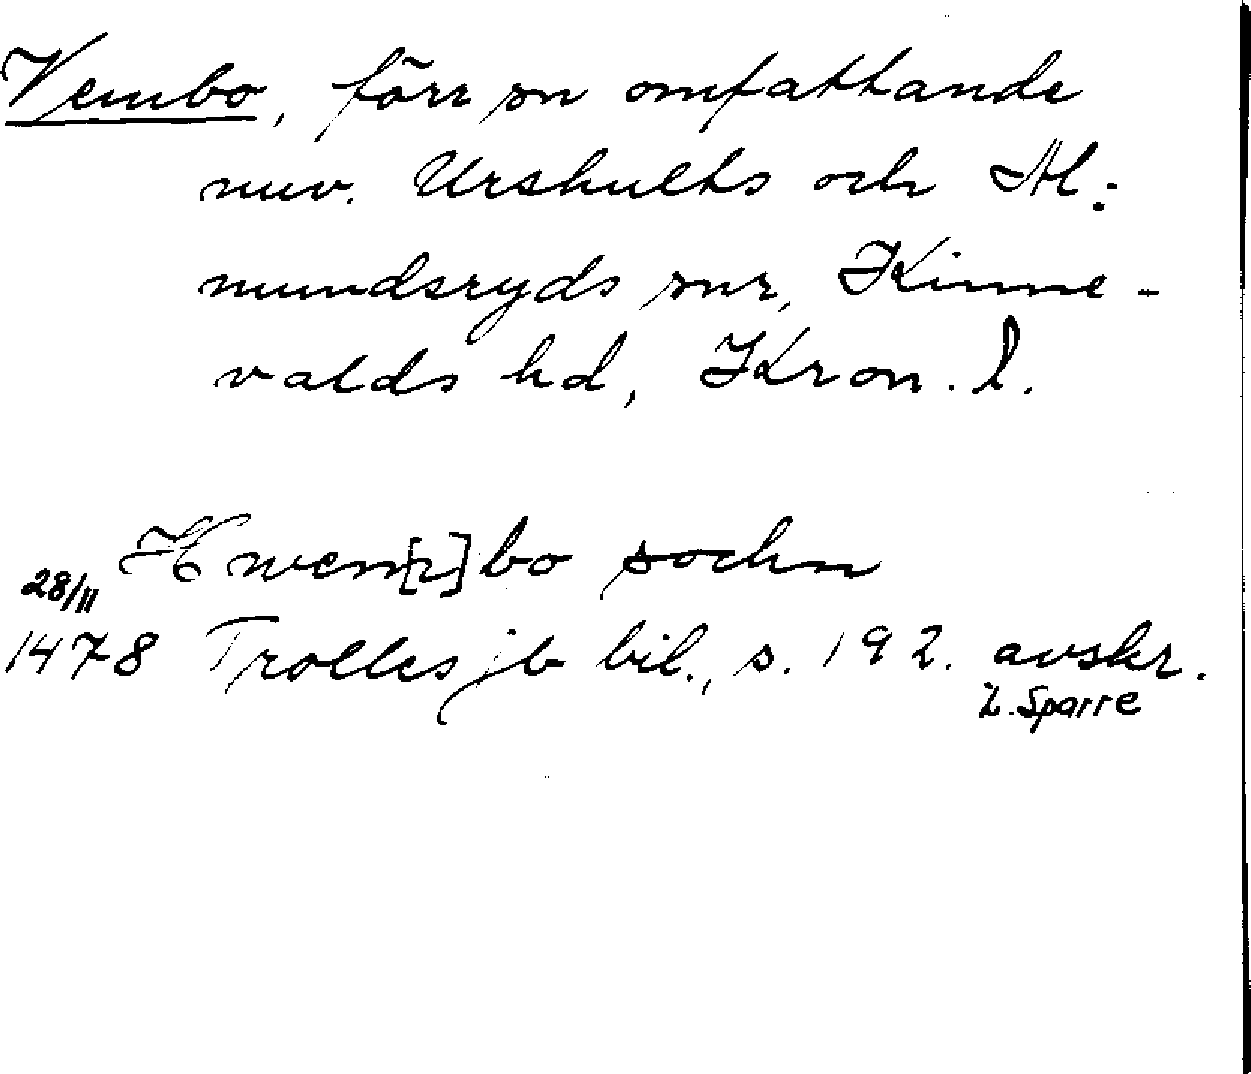 Vembo, förr sn omfattande
nuv. Urshults och Al-
mundsryds snr, Kinne-
valds hd, Kron. l.
Hwem[m]bo sochn
28/11
1478 Trolles jb bil., s. 192. avskr.
L. Sparre